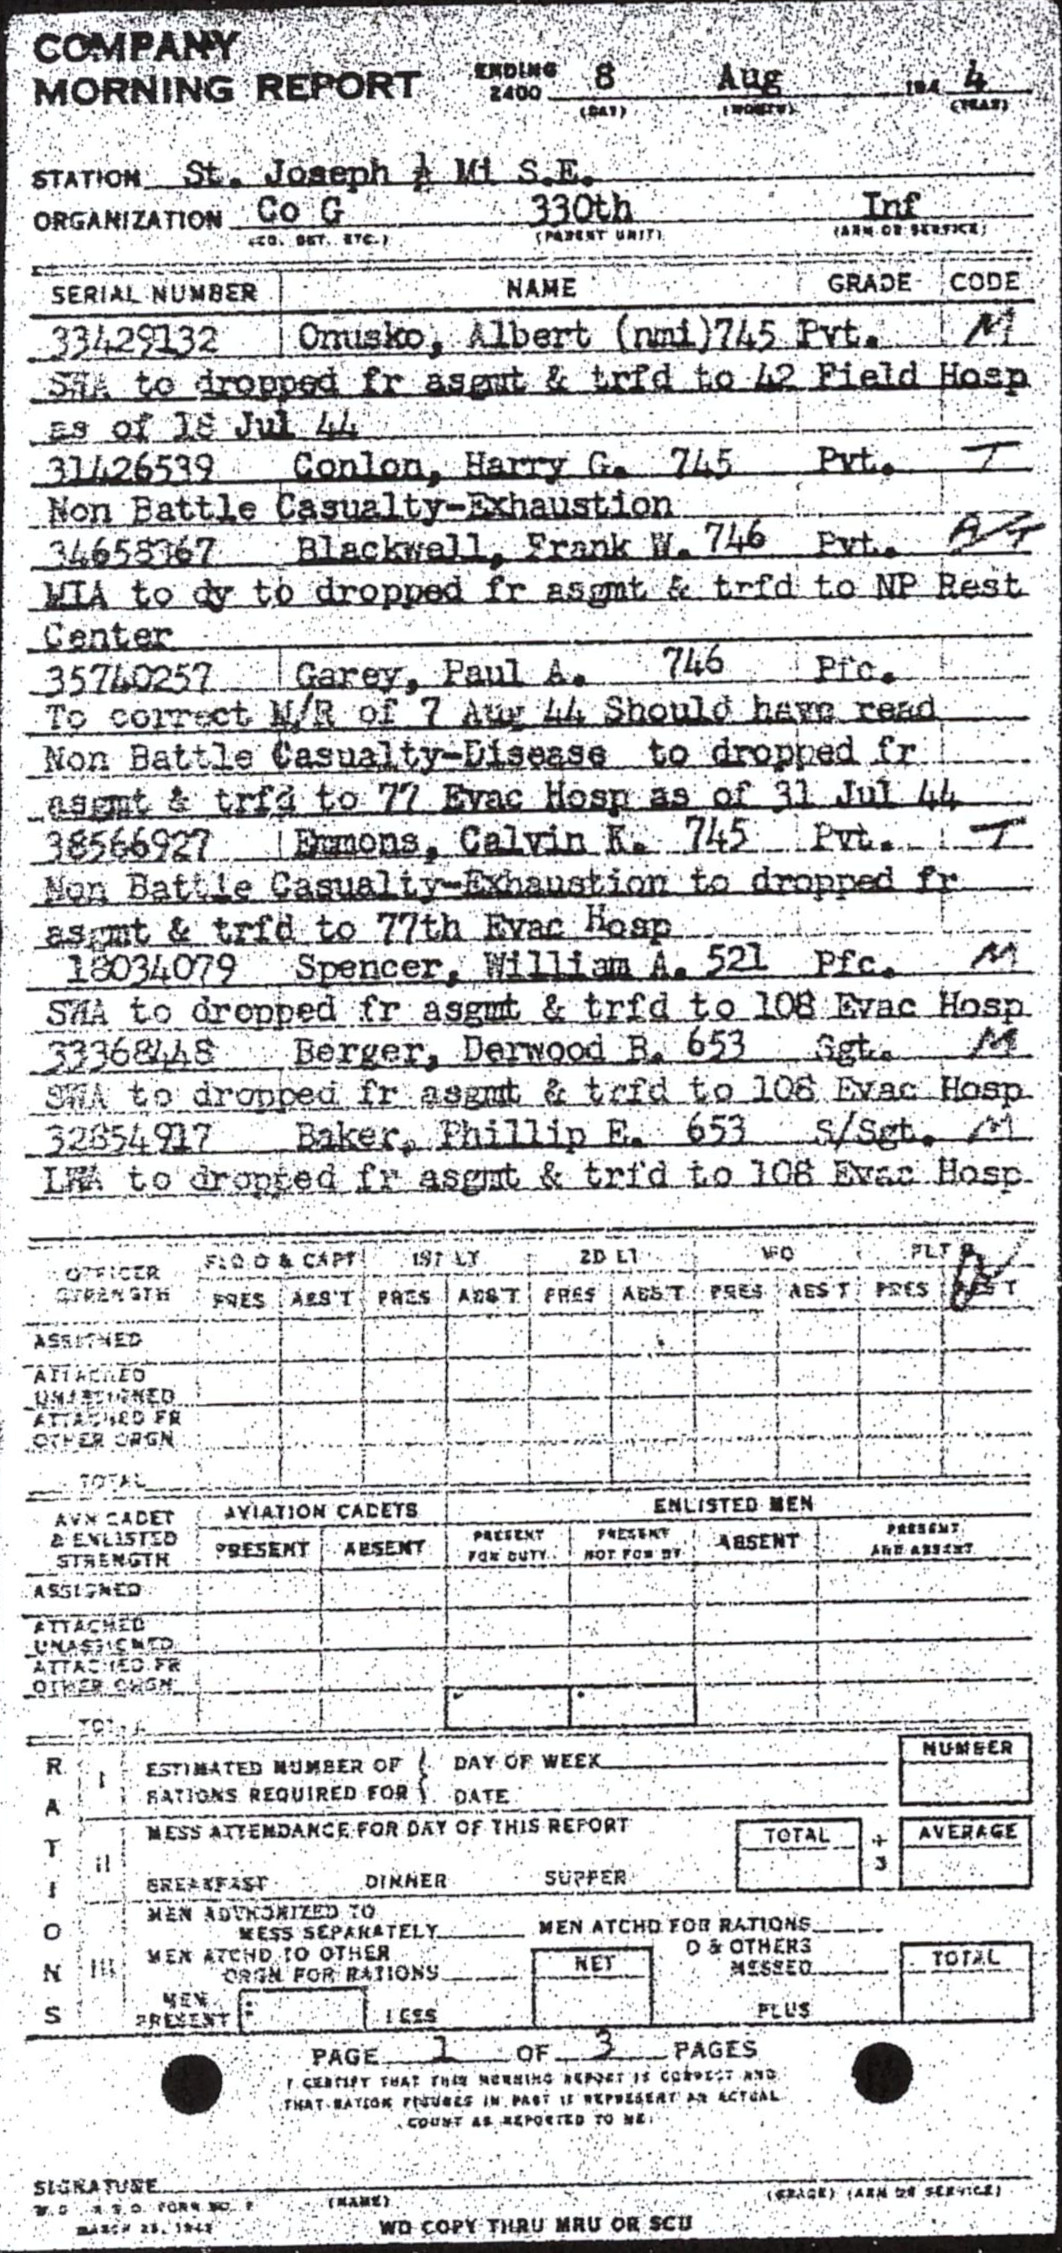 COMPANY
MORNING REPORT ENDING 2400 8 Aug 194 4
(DAY) (MONTH) (YEAR)
STATION St. Joseph ½ Mi S.E.
ORGANIZATION Co G 330th Inf
(CO. DET. ETC.) (PARENT UNIT) (ARM OR SERVICE)
SERIAL NUMBER NAME GRADE CODE
33429132 Onusko, Albert (nmi)745 Pvt. M
SWA to dropped fr asgmt & trfd to 42 Field Hosp
as of 18 Jul 44
31426539 Conlon, Harry G. 745 Pvt. T
Non Battle Casualty-Exhaustion
34658367 Blackwell, Frank W. 746 Pvt.
MIA to dy to dropped fr asgmt & trfd to NP Rest
Center
35740257 Garey, Paul A. 746 Pfc.
To correct M/R of 7 Aug 44 Should have read
Non Battle Casualty-Disease to dropped fr
asgmt & trfd to 77 Evac Hosp as of 31 Jul 44
38566927 Emmons, Calvin K. 745 Pvt. T
Non Battle Casualty-Exhaustion to dropped fr
asgmt & trfd to 77th Evac Hosp
18034079 Spencer, William A. 521 Pfc. M
SWA to dropped fr asgmt & trfd to 108 Evac Hosp
33368448 Berger, Derwood B. 653 Sgt. M
SWA to dropped fr asgmt & trfd to 108 Evac Hosp
32854917 Baker, Phillip E. 653 S/Sgt. M
LWA to dropped fr asgmt & trfd to 108 Evac Hosp
OFFICER STRENGTH FLD O & CAPT 1ST LT 2D LT WO FLT O
PRES ABS'T PRES ABS'T PRES ABS'T PRES ABS'T PRES ABS'T
ASSIGNED
ATTACHED
UNASSIGNED
ATTACHED FR
OTHER ORGN
TOTAL
AVN CADET & ENLISTED STRENGTH AVIATION CADETS ENLISTED MEN
PRESENT ABSENT PRESENT FOR DUTY PRESENT NOT FOR DY ABSENT PRESENT AND ABSENT
ASSIGNED
ATTACHED
UNASSIGNED
ATTACHED FR
OTHER ORGN
TOTAL
RATIONS
I ESTIMATED NUMBER OF DAY OF WEEK NUMBER
RATIONS REQUIRED FOR DATE
II MESS ATTENDANCE FOR DAY OF THIS REPORT TOTAL ÷ 3 AVERAGE
BREAKFAST DINNER SUPPER
III MEN AUTHORIZED TO
MESS SEPARATELY MEN ATCHD FOR RATIONS
MEN ATCHD TO OTHER
ORGN FOR RATIONS NET O & OTHERS
MESSED TOTAL
MEN
PRESENT LESS PLUS
PAGE 1 OF 3 PAGES
I CERTIFY THAT THIS MORNING REPORT IS CORRECT AND
THAT RATION FIGURES IN PART II REPRESENT AN ACTUAL
COUNT AS REPORTED TO ME.
SIGNATURE
(NAME) (GRADE) (ARM OR SERVICE)
W.D. A.G.O. FORM NO. 1
MARCH 25, 1943
WD COPY THRU MRU OR SCU